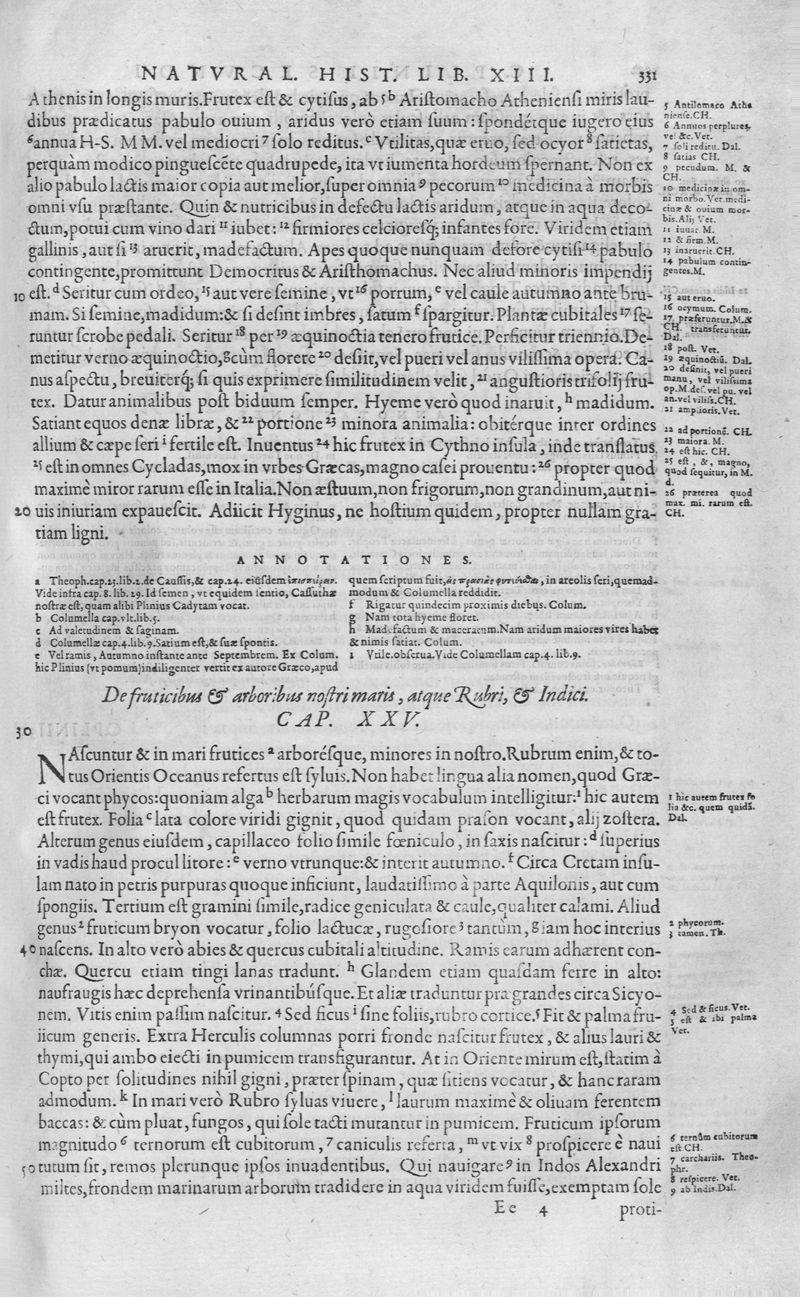 NATVRAL. HIST. LIB. XIII. 331
Athenis in longis muris. Frutex est & cytisus, ab ⁵ ᵇ Aristomacho Atheniensi miris lau-
dibus prædicatus pabulo ouium, aridus verò etiam suum: spondétque iugero eius
⁶annua H-S. M M. vel mediocri ⁷ solo reditus. ᶜ Vtilitas, quæ eruo, sed ocyor ⁸ satietas,
perquàm modico pinguescẽte quadrupede, ita vt iumenta hordeum spernant. Non ex
alio pabulo lactis maior copia aut melior, super omnia ⁹ pecorum ¹⁰ medicina à morbis
omni vsu præstante. Quin & nutricibus in defectu lactis aridum, atque in aqua deco-
ctum, potui cum vino dari ¹¹ iubet: ¹² firmiores celsioresq; infantes fore. Viridem etiam
gallinis, aut si ¹³ aruerit, madefactum. Apes quoque nunquam defore cytisi ¹⁴ pabulo
contingente, promittunt Democritus & Aristhomachus. Nec aliud minoris impendij
10 est. ᵈ Seritur cum ordeo, ¹⁵ aut vere semine, vt ¹⁶ porrum, ᵉ vel caule autumno ante bru-
mam. Si semine, madidum: & si desint imbres, satum ᶠ spargitur. Plantæ cubitales ¹⁷ se-
runtur scrobe pedali. Seritur ¹⁸ per ¹⁹ æquinoctia tenero frutice. Perficitur triennio. De-
metitur verno æquinoctio, ᵍ cùm florere ²⁰ desiit, vel pueri vel anus vilissima opera. Ca-
nus aspectu, breuiterq; si quis exprimere similitudinem velit, ²¹ angustioris trifolij fru-
tex. Datur animalibus post biduum semper. Hyeme verò quod inaruit, ʰ madidum.
Satiant equos denæ libræ, & ²² portione ²³ minora animalia: obitérque inter ordines
allium & cæpe seri ⁱ fertile est. Inuentus ²⁴ hic frutex in Cythno insula, inde translatus
²⁵ est in omnes Cycladas, mox in vrbes Græcas, magno casei prouentu: ²⁶ propter quod
maximè miror rarum esse in Italia. Non æstuum, non frigorum, non grandinum, aut ni-
20 uis iniuriam expauescit. Adiicit Hyginus, ne hostium quidem, propter nullam gra-
tiam ligni.
5 Antilomaco Athe
niense. CH.
6 Annuos perplures,
vel &c. Vet.
7 soli reditu. Dal.
8 satias CH.
9 pecudum. M. &
CH.
10 medicinæ in om-
ni morbo. Vet. medi-
cinæ & ouium mor-
bis. Alij Vet.
11 iuuat. M.
12 & firm. M.
13 inaruerit. CH.
14 pabulum contin-
gentes. M.
15 aut eruo.
16 ocymum. Colum.
17 præferuntur. M. &
CH. transferuntur.
Dal.
18 post. Vet.
19 æquinoctiũ. Dal.
20 desinit, vel pueri
manu, vel vilissima
op. M. des. vel pu. vel
an. vel vilis. CH.
21 amplioris. Vet.
22 ad portionẽ. CH.
23 maiora. M.
24 est hic. CH.
25 est, &, magno,
quod sequitur, in M.
d.
26 præterea quod
max. mi. rarum est.
CH.
ANNOTATIONES.
a Theoph. cap. 23. lib. 2. de Caussis, & cap. 24. eiusdem
Vide infra cap. 8. lib. 29. Id semen, vt equidem sentio, Cassuthæ
nostræ est, quam alibi Plinius Cadytam vocat.
b Columella cap. vlt. lib. 5.
c Ad valetudinem & saginam.
d Columellæ cap. 4. lib. 9. Satium est, & suæ spontis.
e Vel ramis, Autumno instante ante Septembrem. Ex Colum.
hic Plinius (vt pomum) indiligenter vertit ex autore Græco, apud
quem scriptum fuit, in areolis seri, quemad-
modum & Columella reddidit.
f Rigatur quindecim proximis diebus. Colum.
g Nam tota hyeme floret.
h Madefactum & maceratum. Nam aridum maiores vires habet
& nimis satiat. Colum.
i Vtile. obserua. Vide Columellam cap. 4. lib. 9.
De fruticibus & arboribus nostri maris, atque Rubri, & Indici.
CAP. XXV.
30
NAscuntur & in mari frutices ᵃ arborésque, minores in nostro. Rubrum enim, & to-
tus Orientis Oceanus refertus est syluis. Non habet lingua alia nomen, quod Græ-
ci vocant phycos: quoniam alga ᵇ herbarum magis vocabulum intelligitur: ¹ hic autem
est frutex. Folia ᶜ lata colore viridi gignit, quod quidam prason vocant, alij zostera.
Alterum genus eiusdem, capillaceo folio simile fœniculo, in saxis nascitur: ᵈ superius
in vadis haud procul litore: ᵉ verno vtrunque: & interit autumno. ᶠ Circa Cretam insu-
lam nato in petris purpuras quoque inficiunt, laudatissimo à parte Aquilonis, aut cum
spongiis. Tertium est gramini simile, radice geniculata & caule, qualiter calami. Aliud
genus ² fruticum bryon vocatur, folio lactucæ, rugosiore ³ tantùm, ᵍ iam hoc interius
40 nascens. In alto verò abies & quercus cubitali altitudine. Ramis earum adhærent con-
chæ. Quercu etiam tingi lanas tradunt. ʰ Glandem etiam quasdam ferre in alto:
naufragis hæc deprehensa vrinantibúsque. Et aliæ traduntur prægrandes circa Sicyo-
nem. Vitis enim passim nascitur. ⁴ Sed ficus ⁱ sine foliis, rubro cortice. ⁵ Fit & palma fru-
iicum generis. Extra Herculis columnas porri fronde nascitur frutex, & alius lauri &
thymi, qui ambo eiecti in pumicem transfigurantur. At in Oriente mirum est, statim à
Copto per solitudines nihil gigni, præter spinam, quæ sitiens vocatur, & hanc raram
admodum. ᵏ In mari verò Rubro syluas viuere, ˡ laurum maximè & oliuam ferentem
baccas: & cùm pluat, fungos, qui sole tacti mutantur in pumicem. Fruticum ipsorum
magnitudo ⁶ ternorum est cubitorum, ⁷ caniculis referta, ᵐ vt vix ⁸ prospicere è naui
50 tutum sit, remos plerunque ipsos inuadentibus. Qui nauigare ⁹ in Indos Alexandri
milites, frondem marinarum arborum tradidere in aqua viridem fuisse, exemptam sole
1 hic autem frutex fo
lia &c. quem quidã.
Dal.
2 phycorum.
3 tamen. Th.
4 Sed & ficus. Vet.
5 est & ibi palma
Vet.
6 ternûm cubitorum
est CH.
7 carchariis. Theo-
phr.
8 respicere. Vet.
9 ab Indis. Dal.
Ee 4 proti-